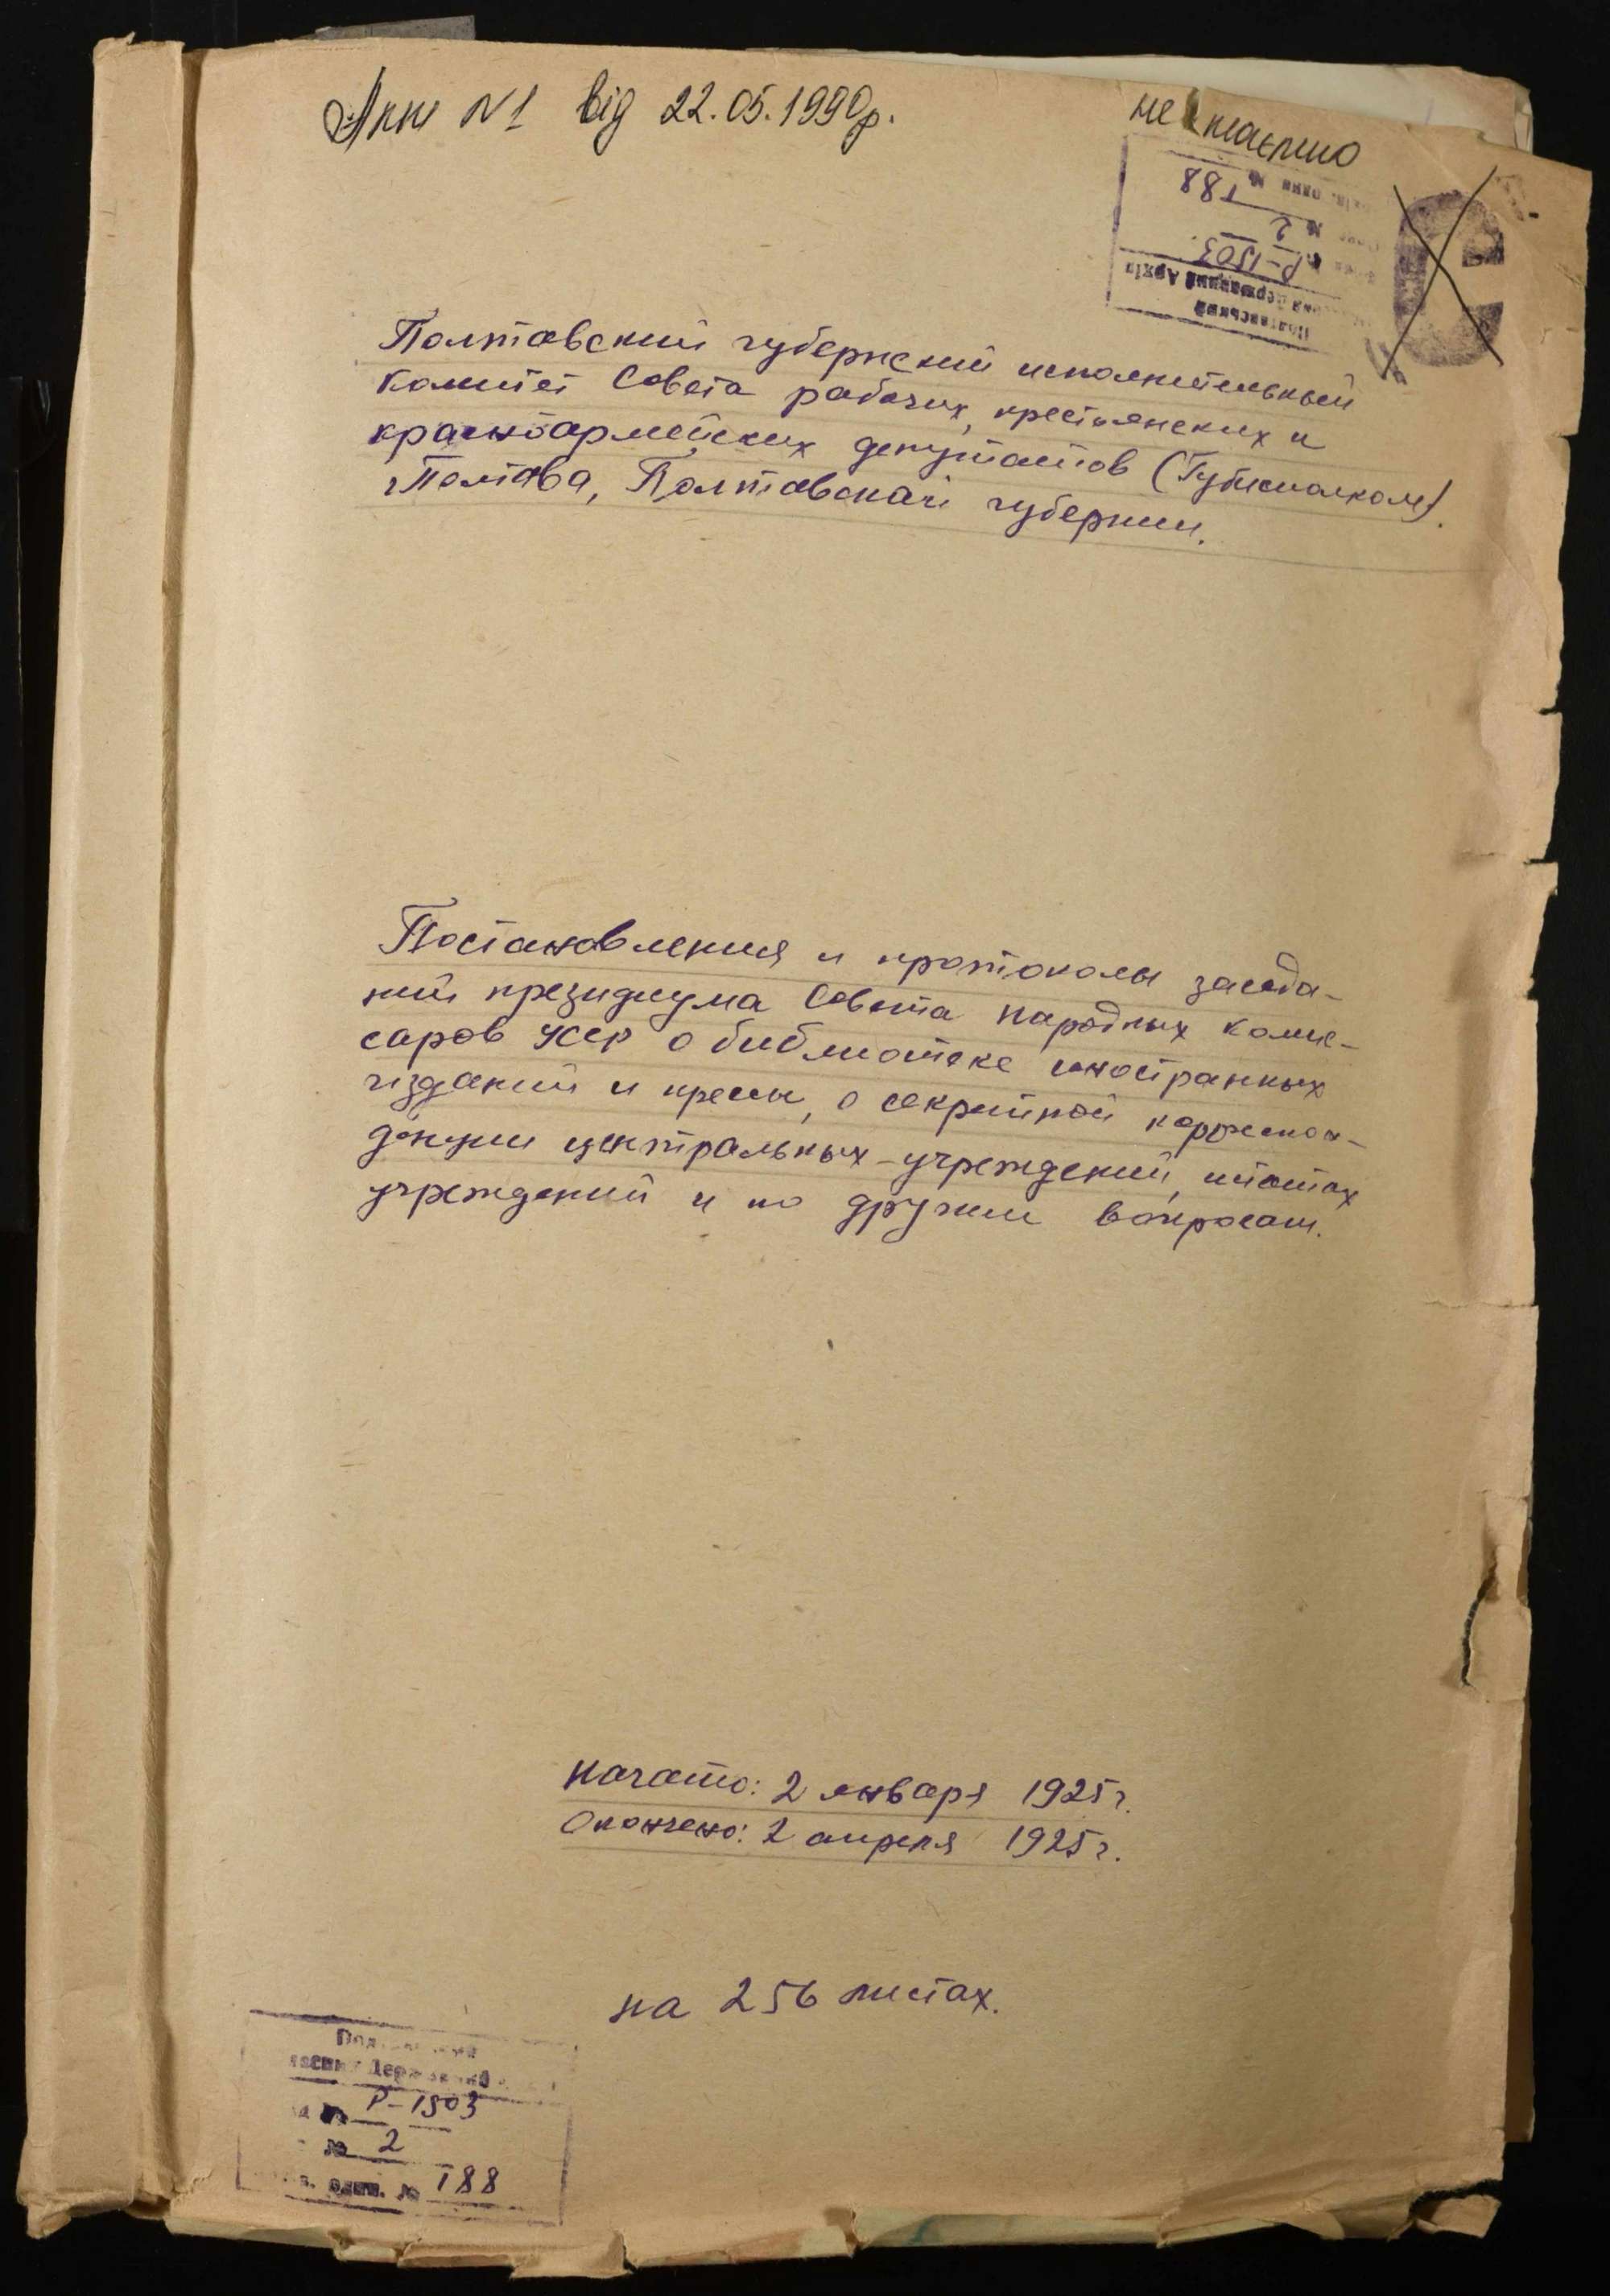 Акт №1 від 22.05.1990р.
не таємно
188
2
Р-1503
Полтавский губернский исполнительный
комитет Совета рабочих, крестьянских и
красноармейских депутатов (Губисполком)
г. Полтава, Полтавской губернии.
Постановления и протоколы заседа-
ний президиума Совета народных комис-
саров УССР о библиотеке иностранных
изданий и прессы, о секретной корреспон-
денции центральных учреждений, штатах
учреждений и по другим вопросам.
Начато: 2 января 1925 г.
Окончено: 2 апреля 1925 г.
на 256 листах.
Р-1503
№ 2
один. № 188